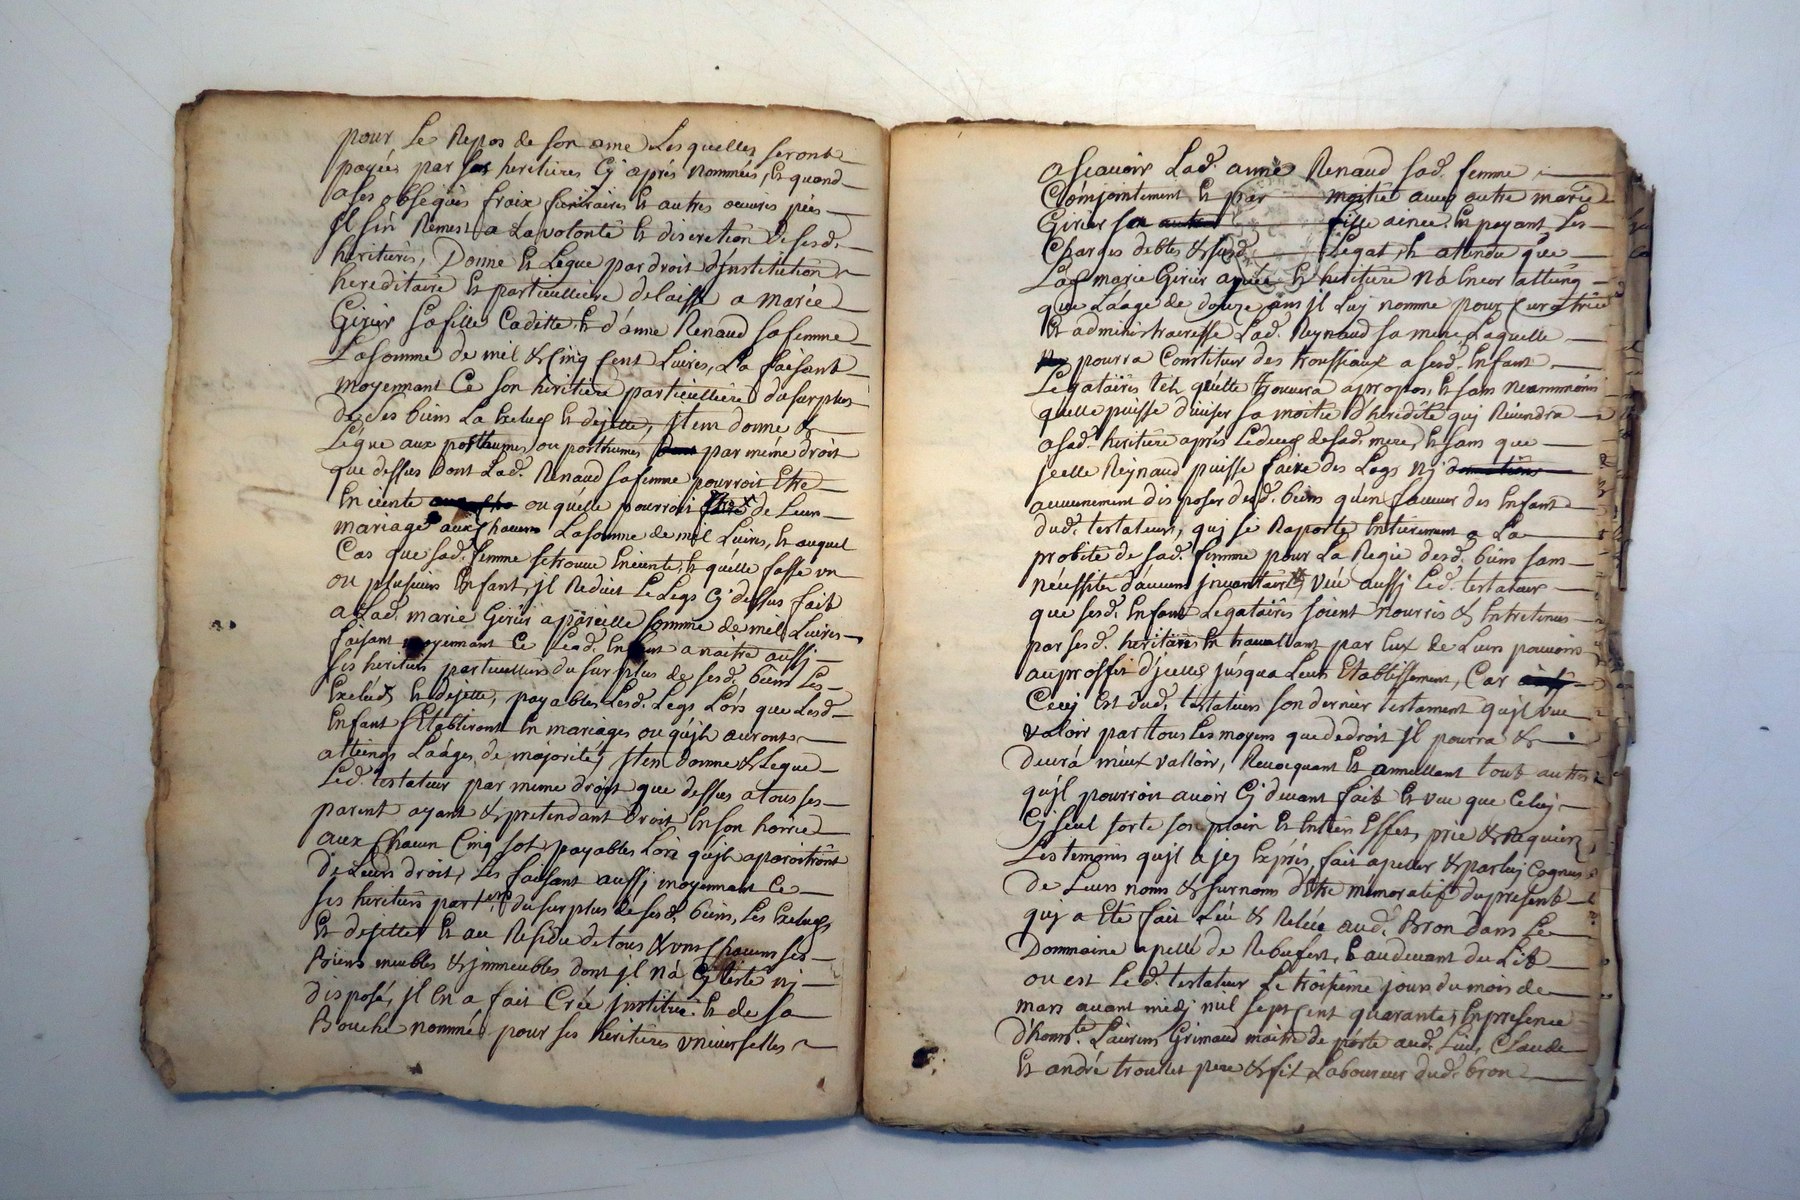 pour Le Repos de son ame Lesquelles seront
payées par ses heritieres Cy aprés nommées, Et quand
a ses obseques fraix funeraires Et autres oeuvres pies
Jl s'en Remest a La volonté Et discretion de sesd.
heritieres, Donne Et Legue par droit d'Jnstitution
hereditaire Et particulliere delaisse a marie
Girier sa fille Cadette Et d'anne Renaud sa femme
La somme de mil & Cinq Cent Livres, La faisant
moyennant Ce son heritiere particulliere du surplus
de ses biens La Exclus Et dejette, Jtem donne &
Legue aux posthumes ou posthumes par méme droit
que dessus dont Lad. Renaud sa femme pourroit Etre
Enceinte ou qu'elle pourroit de Leur
mariage aux Chacun La somme de mil Livres, Et auquel
Cas que sad. femme se trouve Enceinte, Et qu'elle fasse vn
ou plusieurs Enfant, Jl Reduit Le Legs Cy dessus fait
a Lad. marie Girier a pareille somme de mil Livres
faisant moyennant Ce Lesd. Enfant a naitre aussj
ses heritiers particulliers du surplus de sesd. biens Les
Exclud Et dejette, payables Lesd. Legs Lors que Lesd.
Enfant s'Etabliront En mariages ou qu'jls auront
atteings L'aages de majorité, Jtem donne & Legue
Led. testateur par meme droit que dessus a tous ses
parent ayant & pretendant droit En son hoirie
aux Chacun Cinq sol payables Lors qu'jls aparoitront
de Leurs droit, Les faisant aussj moyennant Ce
ses heritiers du surplus de sesd. biens, Les Exclus
Et dejettes Et au Residu de tous & vns Chacuns ses
Biens meubles & jmmeubles dont jl n'a Cy testé nj
disposé, Jl En a fait Crée jnstitué Et de sa
Bouche nommé pour ses heritieres vniverselles
a scavoir Lad. anne Renaud sad. femme
Conjointement Et par moitié avec autre marie
Girier fille ainée Et payant Les
Charges debtes & Legat, Et atendu que
Lad. marie Girier Et heritiere n'a Encor Latteing
que L'aage de douze ans jl Luy nomme pour Curatrice
Et administraresse Lad. Reynaud sa mere Laquelle
pourra Constituer des trousseaux a sesd. Enfant
Legataires tels quelle trouvera apropos, Et sans neammoins
quelle puisse diviser sa moitié d'heredité quj Reviendra
a sad. heritiere aprés Le deces de sad. mere, Et sans que
jcelle Reynaud puisse faire des Legs nj donations
aucunement disposer desd. biens qu'en faveur des Enfant
dud. testateur, quj se Raporte Entierement a La
probité de sad. femme pour La Regie desd. biens sans
necessité d'aucun jnventaire, Veu aussj Led. testateur
que sesd. Enfant Legataires soient nourris & Entretenus
par sesd. heritieres En travaillant par Eux de Leurs pouvoirs
au proffit d'jcelles jusqua Leur Etablissement, Car
Cecy Est dud. testateur son dernier testament qu'jl veu
valoir par tous Les moyens que de droit jl pourra &
devrá mieux valloir, Revocquant Et annullant tout autres
qu'jl pourroit avoir Cy devant fait Et veu que Celuy
Cy seul sorte son plain Et Entier Effet, prie & Requiert
Les temoins qu'jl a jcy Exprés fait apeller & par luy Cognus
de Leurs noms & surnoms d'être memoratif du present
quj a Eté fait Leu & Releu aud. Bron dans Le
Dommaine apellé de Rebufert, Et au devant du Lit
ou est Led. testateur Le troisieme jour du mois de
mars avant midj mil sept Cent quarante, En presence
d'honte. Laurens Grimaud maitre de poste aud. Lieu, Claude
Et andré trouillet pere & fils Laboureur dud. bron